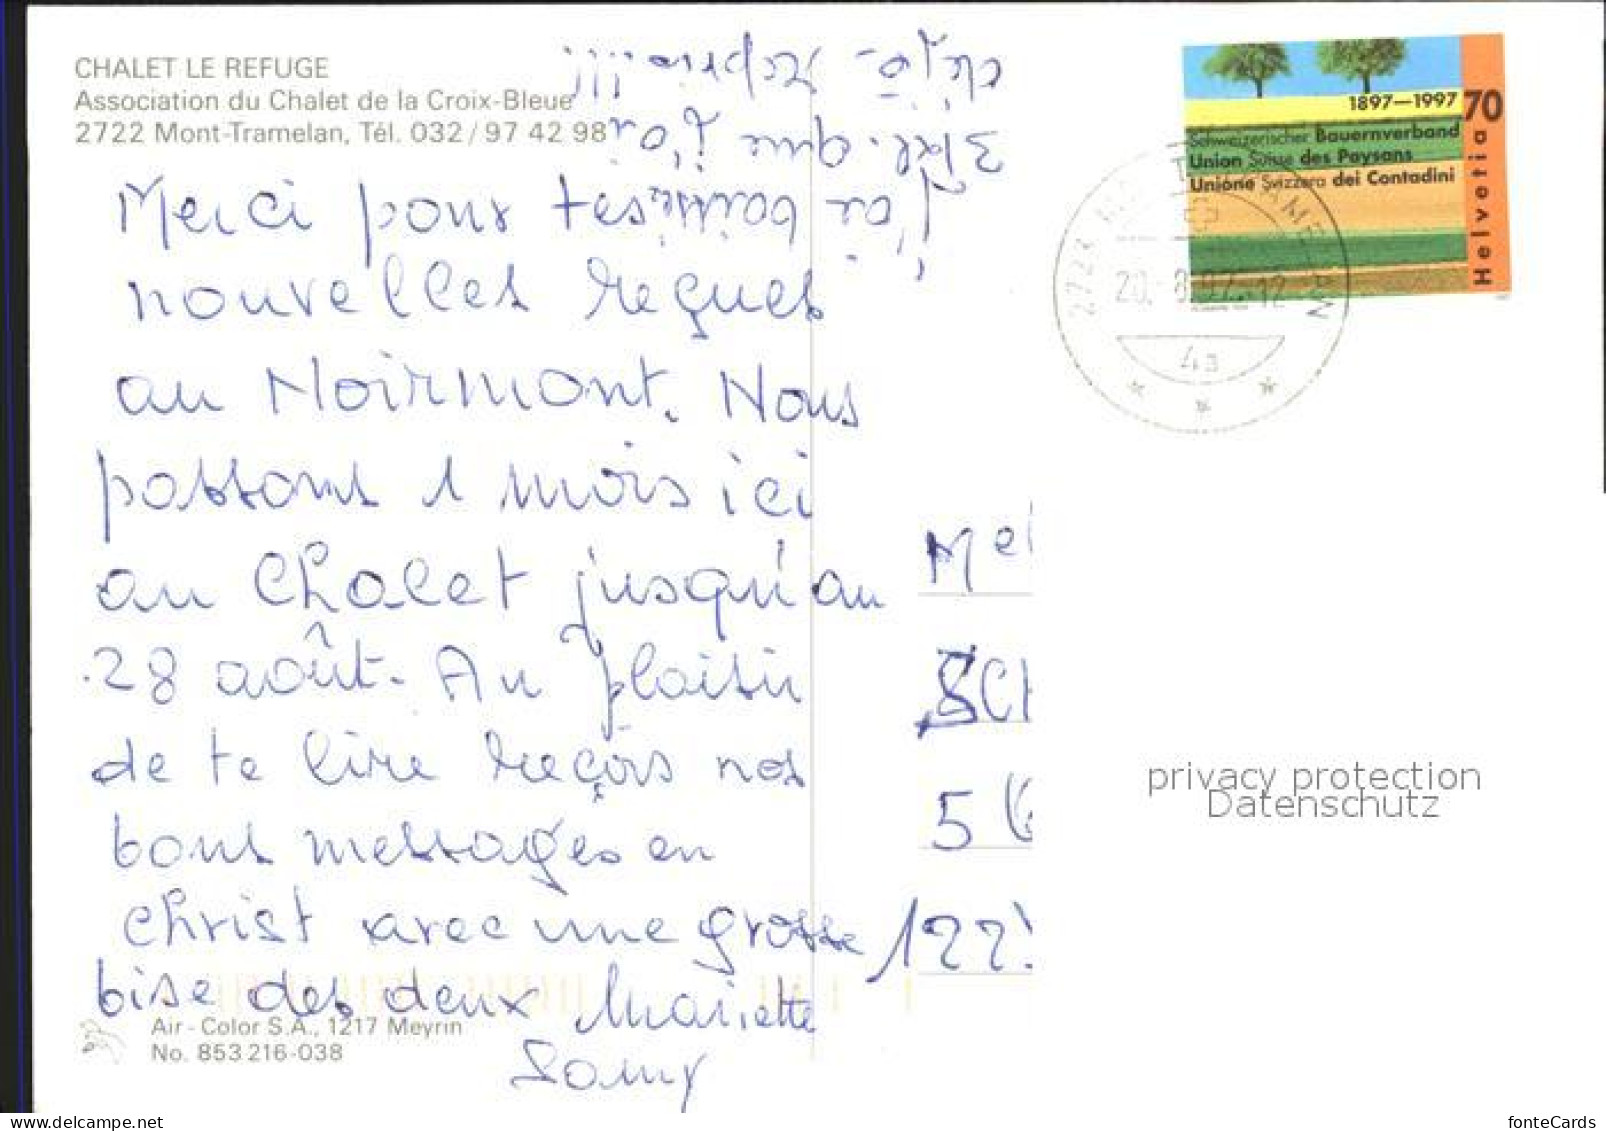 CHALET LE REFUGE
Association du Chalet de la Croix-Bleue
2722 Mont-Tramelan, Tél. 032/97 42 98
Merci pour tes
nouvelles reçues
au Noirmont. Nous
passons 1 mois ici
au Chalet jusqu'au
28 août. Au plaisir
de te lire reçois nos
bons messages en
Christ avec une grosse
bise des deux Mariette
Samy
J'ai
que j'ai
déjà repris!!!...
Air-Color S.A., 1217 Meyrin
No. 853 216-038
1897–1997 70
Schweizerischer Bauernverband
Union Suisse des Paysans
Unione Svizzera dei Contadini
Helvetia
2723 MONT-TRAMELAN
20.-8.97.-12
4a
Mel
SCH
5
122
privacy protection
Datenschutz
www.delcampe.net
fonteCards